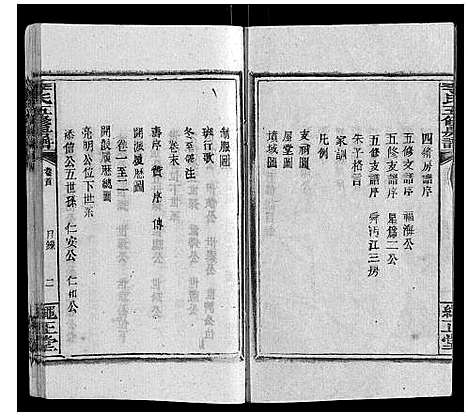 四修房譜序
五修支譜序 福海公
五修支譜序 星舊二公
五修支譜序 舜沔江三房
朱子格言
家訓
凡例
支祠圖
居堂圖
墳域圖
制服圖
班行歌
冬至祭注
卷末
壽序 賀序 傳
開派履歷圖
卷一至二
開派履歷總圖
亮明公位下世系
添信公五世孫 仁安公 仁和公
李氏五修房譜
卷首
目錄
二
繩正堂